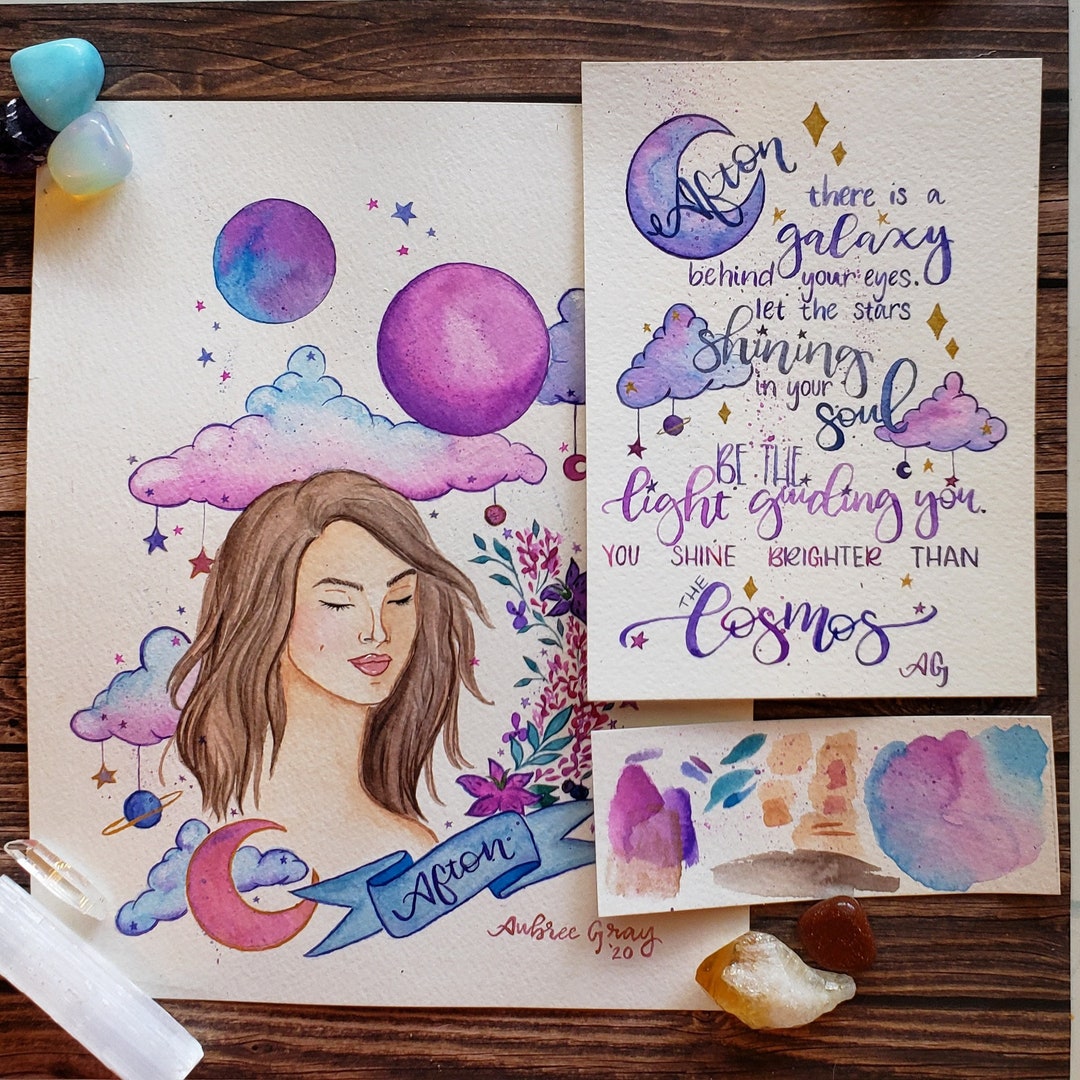 Afton
there is a
galaxy
behind your eyes.
let the stars
shining
in your
soul
BE THE
light guiding you.
YOU SHINE BRIGHTER THAN
THE
Cosmos
AG
Afton
Aubree Gray
'20